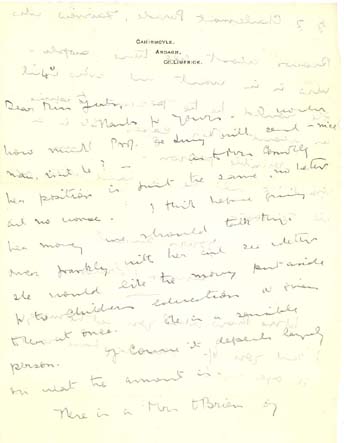 CAHIRMOYLE,
ARDAGH,
CO. LIMERICK.
Dear Miss Yeats,
Thanks for yours. I wonder
how much Prof. will send - nice
man, isn't he? - As to Mrs Connolly
her position is just the same, no better
and no worse. I think before giving
her money we should talk things
over frankly with her and see whether
she would like the money put aside
for the children's education or given
to them at once. She is a sensible
person. Of course it depends largely
on what the amount is.
There is a Mrs O'Brien of